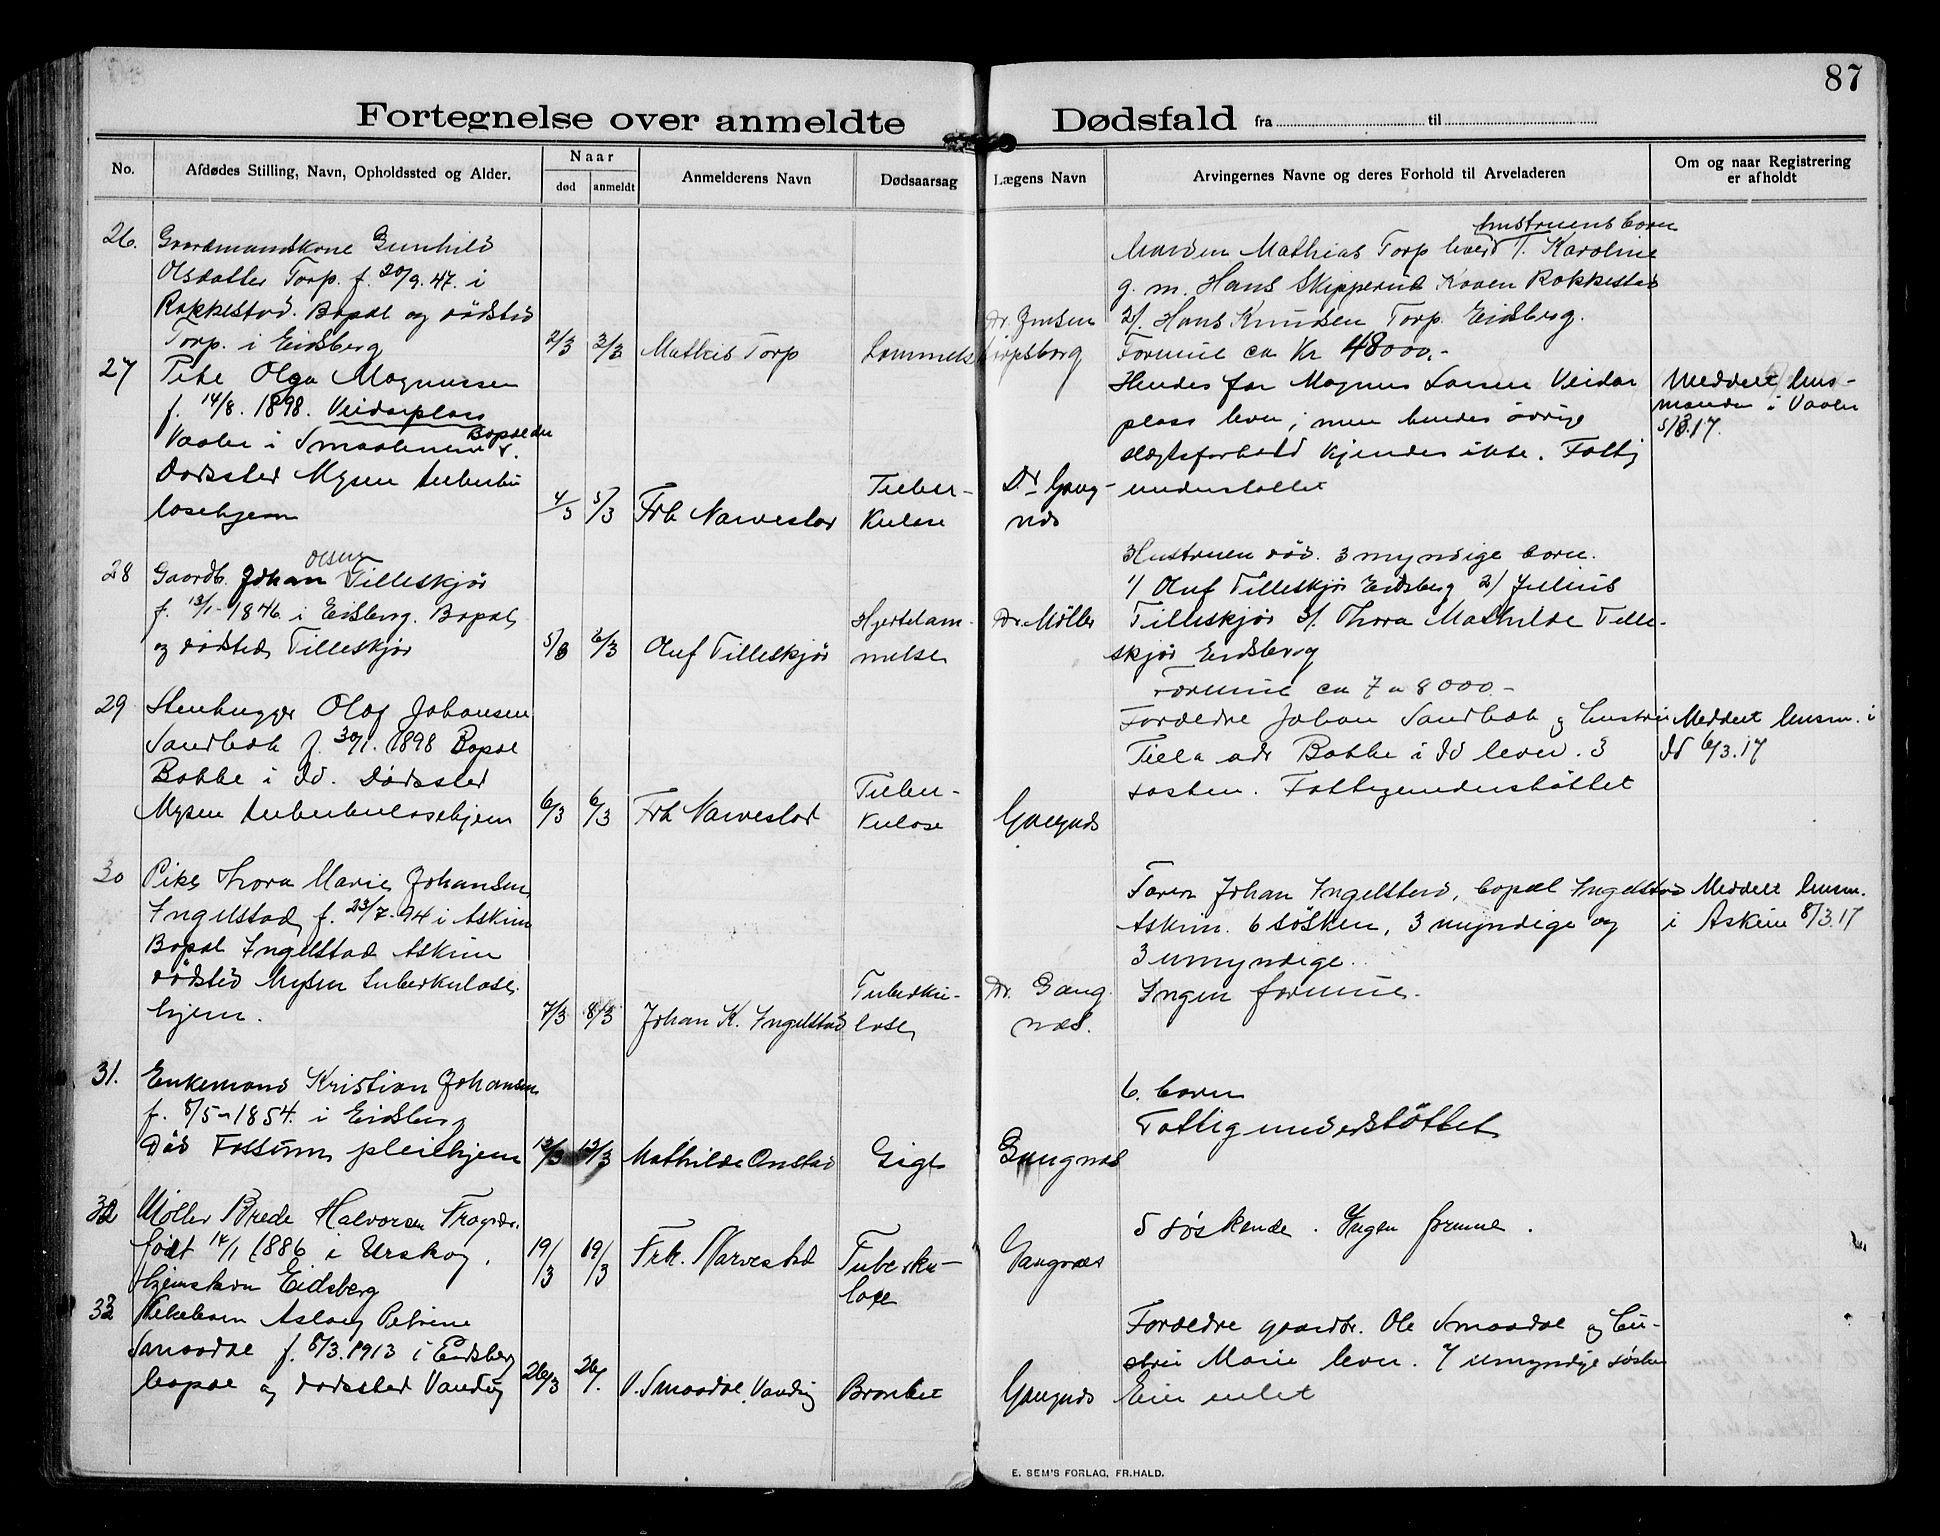 87
Fortegnelse over anmeldte Dødsfald fra til
No.
Afdødes Stilling, Navn, Opholdssted og Alder.
Naar
død
anmeldt
Anmelderens Navn
Dødsaarsag
Lægens Navn
Arvingernes Navne og deres Forhold til Arveladeren
Om og naar Registrering
er afholdt
26.
Gaardmandskone Gunhild
Olsdatter Torp. f. 20/9. 47. i
Rakkestad. Bopæl og dödsted
Torp. i Eidsberg
2/3
3/3
Mathis Torp
Dr. Jensen
hustruens born
Manden Mathias Torp 1. Karoline
g. m. Hans Skipperud Kaaen Rakkestad
2/. Hans Knudsen Torp. Eidsberg.
Formue ca Kr 48000.-
27
Pike Olga Magnussen
f. 14/8. 1898. Veidarplass
Vaaler i Smaalenene Bopæl
Dødssted Mysen tuberku
losehjem
4/3
5/3
Frk Narvestad
Tuber-
kulose
Dr Gang-
næs
Hendes far Magnus Larsen Veidar
plass lever; men hendes övrige
slegtsforhold kjendes ikke. Fattig
understöttet
Meddelt lens-
manden i Vaaler
5/3.17.
28
Gaardb. Johan Olsen Tilleskjør
f. 13/1-1846. i Eidsberg. Bopæl
og dödsted Tilleskjør
5/3
6/3
Oluf Tilleskjør
Hjertelam-
melse
Dr. Møller
Hustruen död. 3 myndige born.
1/ Oluf Tilleskjør Eidsberg 2/ Julius
Tilleskjør 3/. Thora Mathilde Tille-
skjør Eidsberg
Formue ca 7 a 8000.-
29
Stenhugger Olaf Johansen
Sandbæk f. 30/1. 1898 Bopæl
Bakke i Id. Dödssted
Mysen tuberkulosehjem
6/3
6/3
Frk Narvestad
Tuber-
kulose
Gangnæs
Forældre Johan Sandbæk og hustru
adr Bakke i Id lever. 3
søsken. Fattigunderstöttet
Meddelt lensm. i
Id 6/3.17
30
Pike Thora Marie Johansen
Ingelstad, f. 23/7-94 i Askim
Bopæl Ingelstad Askim
dödsted Mysen tuberkulose
hjem.
7/3
8/3
Johan K. Ingelstad
Tuberku-
lose
Dr. Gang
næs.
Faren Johan Ingelstad, bopæl Ingelstad
Askim. 6 søsken, 3 myndige og
3 umyndige.
Ingen formue.
Meddelt lensm.
i Askim 8/3.17
31.
Enkemand Kristian Johansen
f. 8/5-1854. i Eidsberg
Död Fossum pleiehjem
12/3
12/3
Mathilde Onstad
Gigt
Gangnæs
6. born
Fattigunderstöttet
32
Møller Brede Halvorsen
født 14/1 1886 i Urskog.
Hjemstavn Eidsberg
19/3
19/3
Frk. Narvestad
Tuberku-
lose
Gangnæs
5 søskende. Ingen formue.
33
Pikebarn Aslaug Petrine
Smaadal f. 8/3.1913 i Eidsberg
bopæl og dødssted Vandug
26/3
26/.
O. Smaadal, Vandug
Bronket
Gangnæs
Forældre gaardbr. Ole Smaadal og hu-
stru Marie lever. 7 umyndige søsken
Eier intet
E. SEM'S FORLAG, FR.HALD.